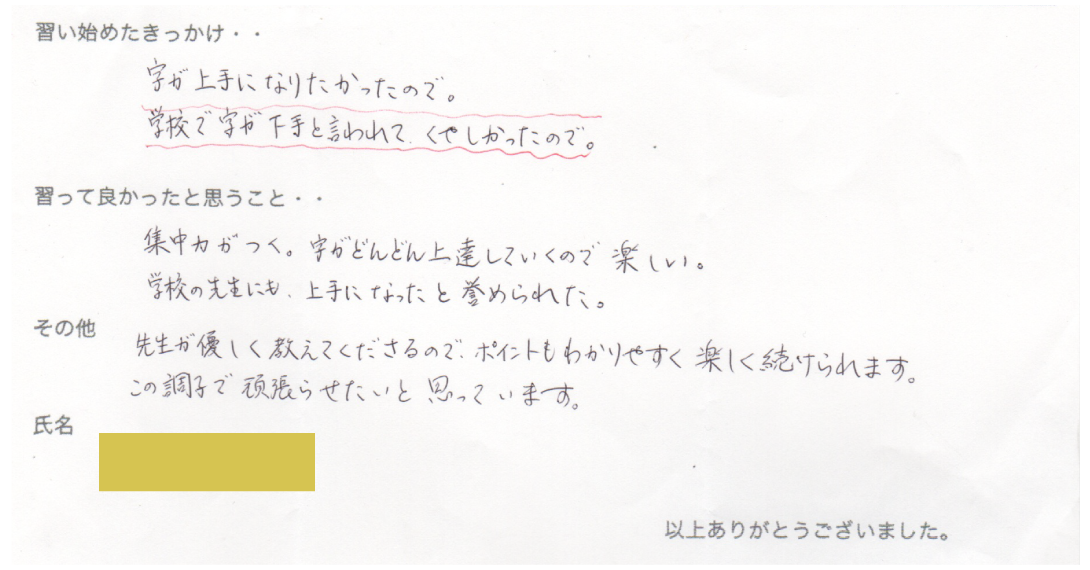 習い始めたきっかけ・・
字が上手になりたかったので。
学校で字が下手と言われて、くやしかったので。
習って良かったと思うこと・・
集中力がつく。字がどんどん上達していくので楽しい。
学校の先生にも、上手になったと誉められた。
その他
先生が優しく教えてくださるので、ポイントもわかりやすく楽しく続けられます。
この調子で頑張らせたいと思っています。
氏名
以上ありがとうございました。